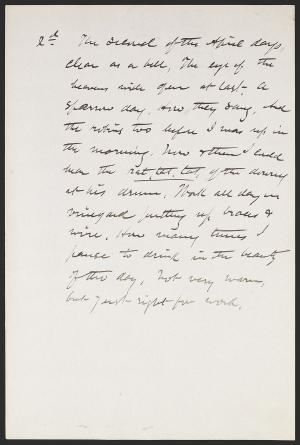 2d The second of the April days,
clear as a bell, The eye of the
heavens wide open at last. A
sparrow day, how they sang. And
the robins too before I was up in
the morning. Now & then I could
hear the rat, tat, tat, of the downy
at his drum. Work all day in
vineyard putting up braces &
wire. How many times I
pause to drink in the beauty
of the day, not very warm,
but just right for work.